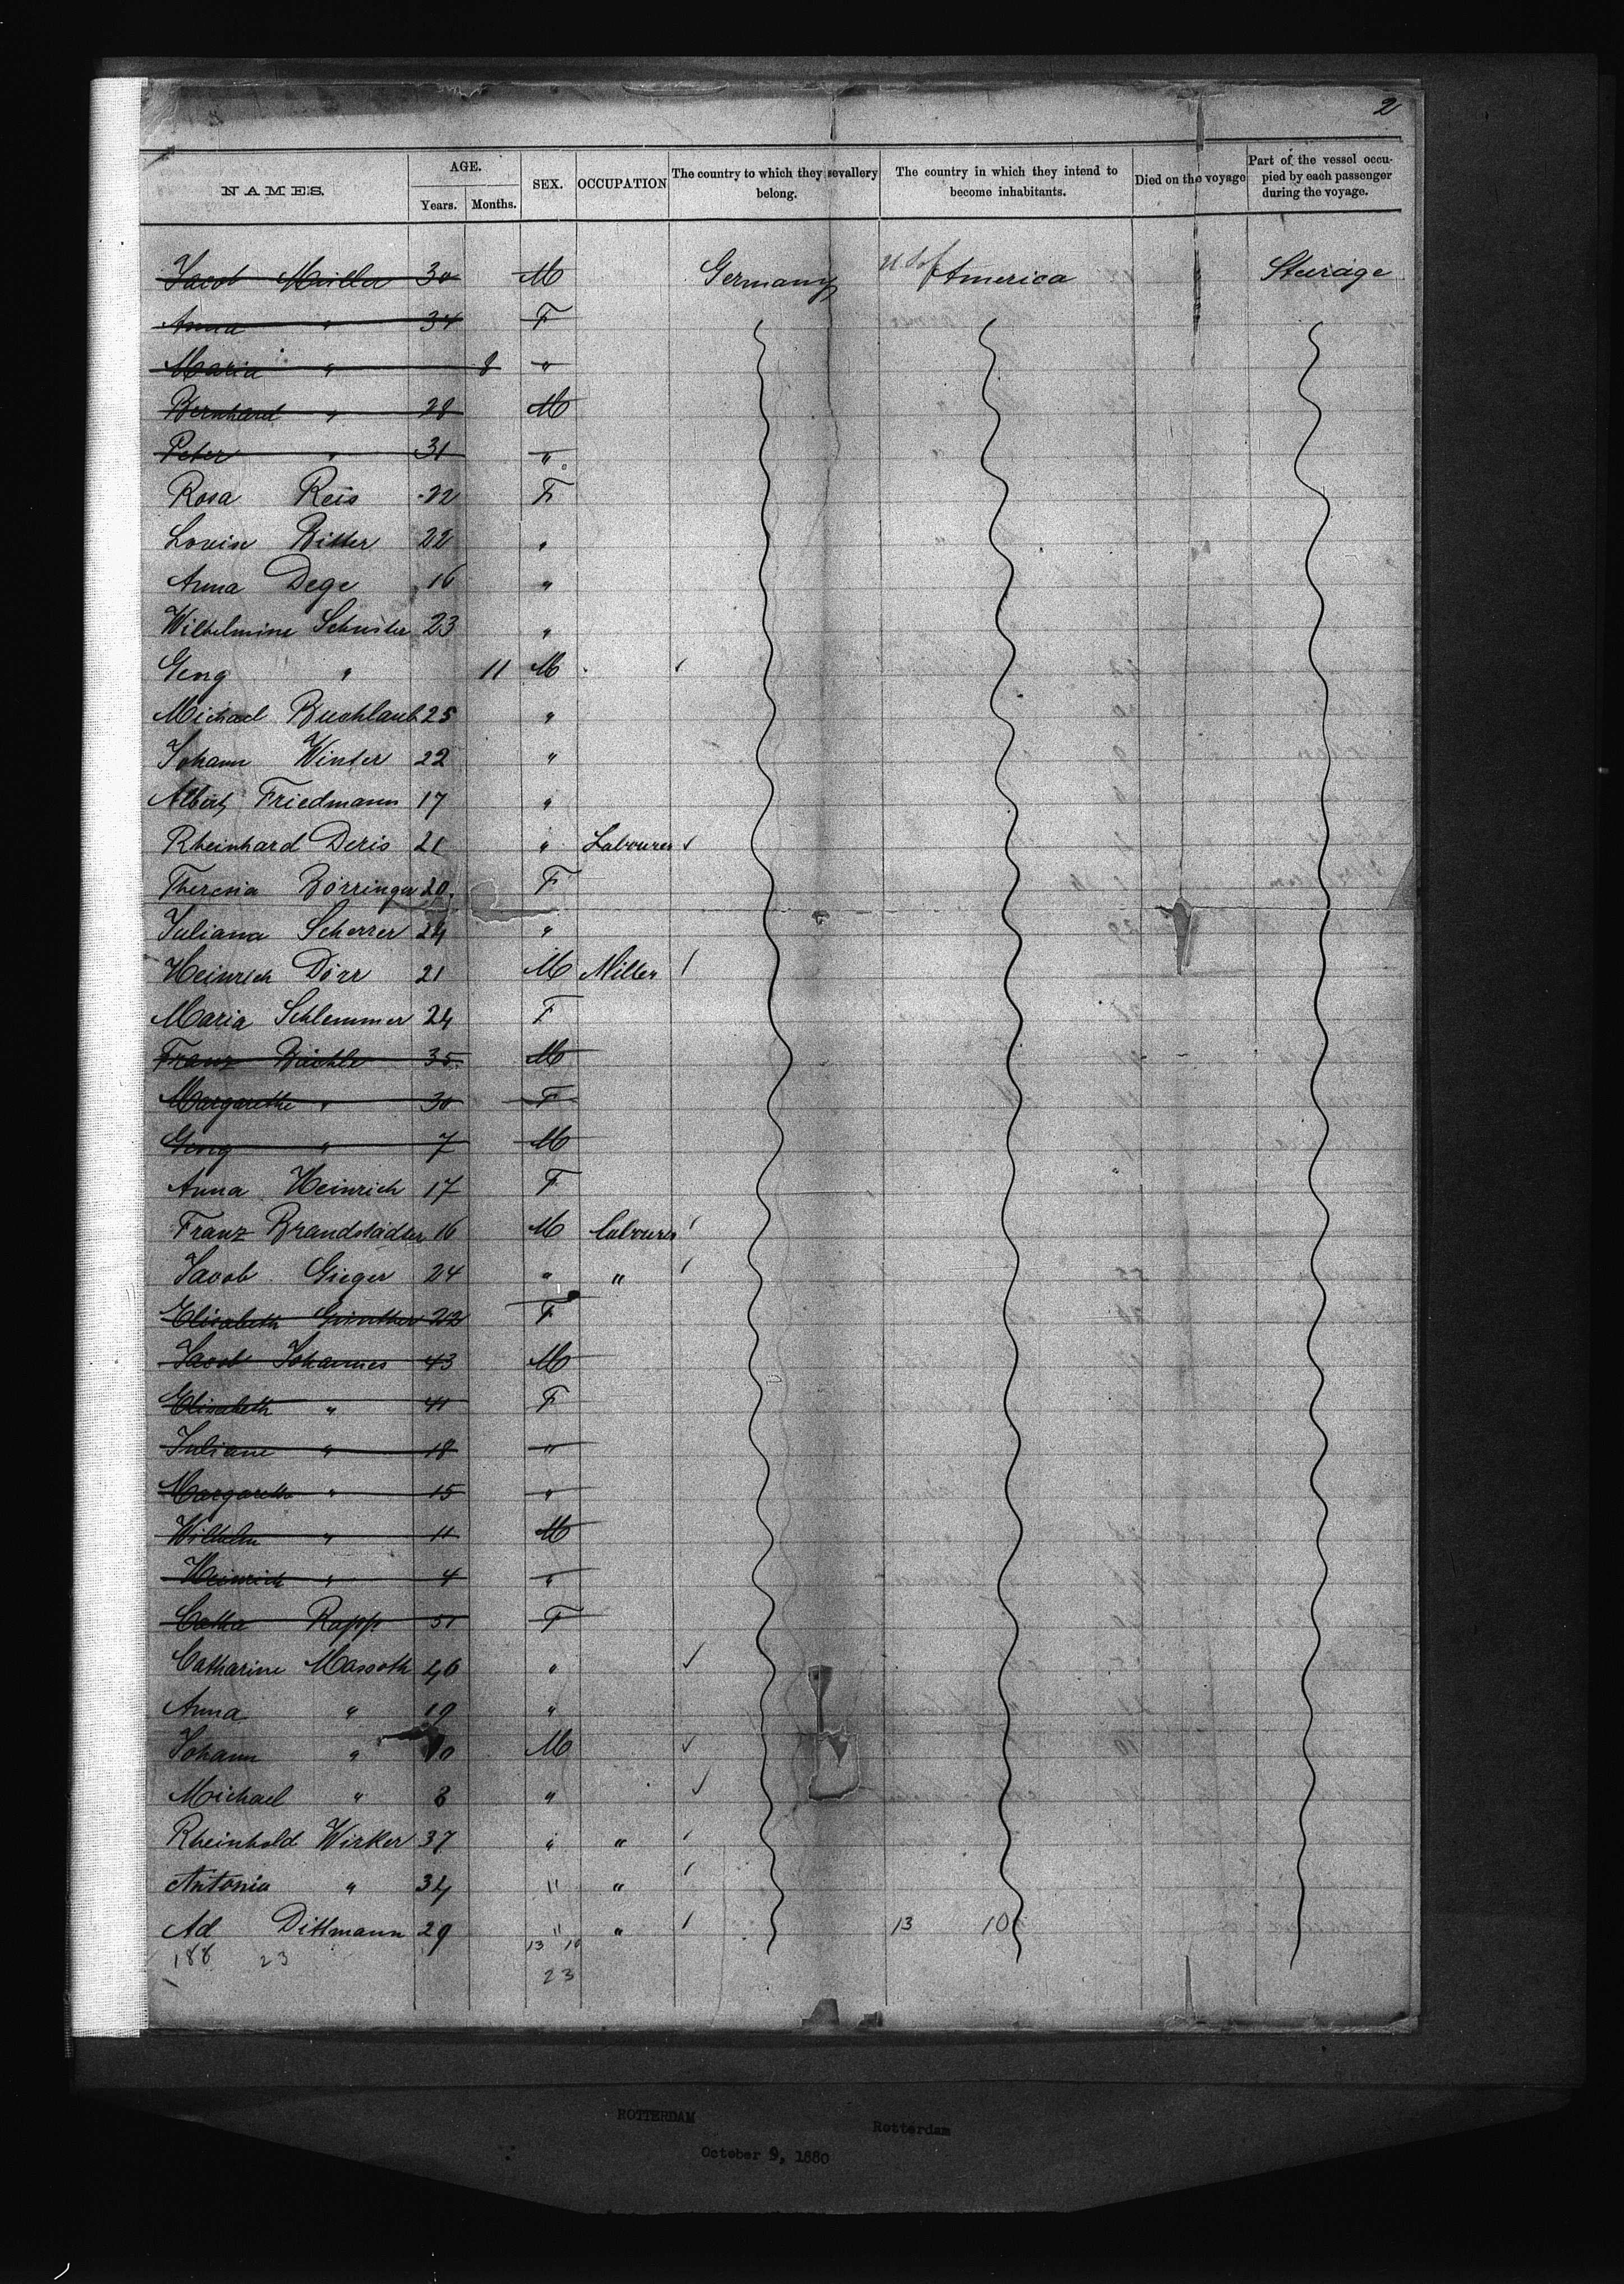 2
NAMES. AGE. SEX. OCCUPATION The country to which they sevallery belong. The country in which they intend to become inhabitants. Died on the voyage Part of the vessel occupied by each passenger during the voyage.
Years. Months.
Jacob Müller 30 M Germany U.S. of America Steerage
Anna " 34 F
Maria " 8 "
Bernhard " 28 M
Peter " 31 "
Rosa Reis 22 F
Louise Ritter 22 "
Anna Dege 16 "
Wilhelmine Schuster 23 "
Georg " 11 M
Michael 25 "
Johann Winter 22 "
Albert Friedmann 17 "
Rheinhard Deris 21 " Labourer
Theresia Börringer 20 F
Juliana Scherrer 24 "
Heinrich Dörr 21 M Miller
Maria Schlemmer 24 F
Franz Büchle 35 M
Margarethe " 30 F
Georg " 7 M
Anna Heinrich 17 F
Franz Brandstädter 16 M labourer
Jacob Gieger 24 " "
Elisabeth Günther 22 F
Jacob Johannes 43 M
Elisabeth " 41 F
Juliane " 18 "
Margareth " 15 "
Wilhelm " 11 M
Heinrich " 4 "
Rapp 51 F
Catharine Massoth 46 "
Anna " 19 "
Johann " 10 M
Michael " 8 "
Rheinhold Wirker 37 " "
Antonia " 34 " "
Ad Dittmann 29 " " 13 10
188 23 13 10
23
ROTTERDAM Rotterdam
October 9, 1880